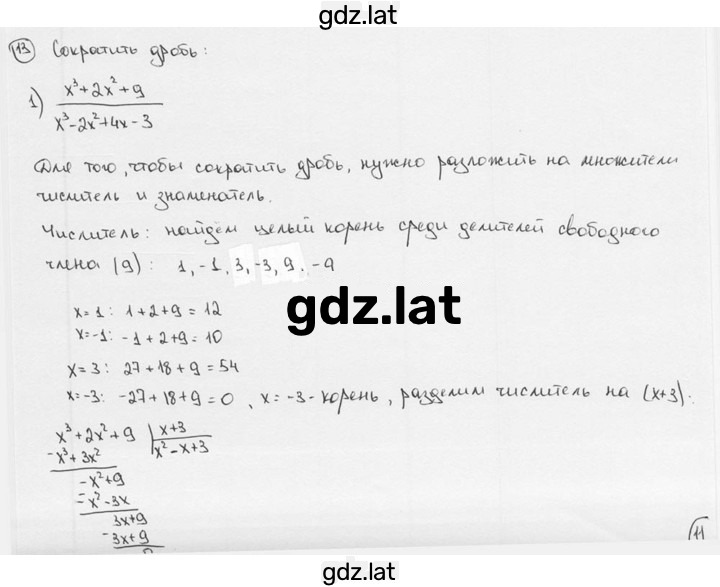 gdz.lat
13 Сократить дробь:
1) x³+2x²+9 / x³-2x²+4x-3
Для того, чтобы сократить дробь, нужно разложить на множители
числитель и знаменатель.
Числитель: найдём целый корень среди делителей свободного
члена (9): 1, -1, 3, -3, 9, -9
gdz.lat
x=1: 1+2+9=12
x=-1: -1+2+9=10
x=3: 27+18+9=54
x=-3: -27+18+9=0, x=-3-корень, разделим числитель на (x+3):
x³+2x²+9 | x+3
-x³+3x² | x²-x+3
-x²+9
-x²-3x
3x+9
-3x+9
0
11
gdz.lat